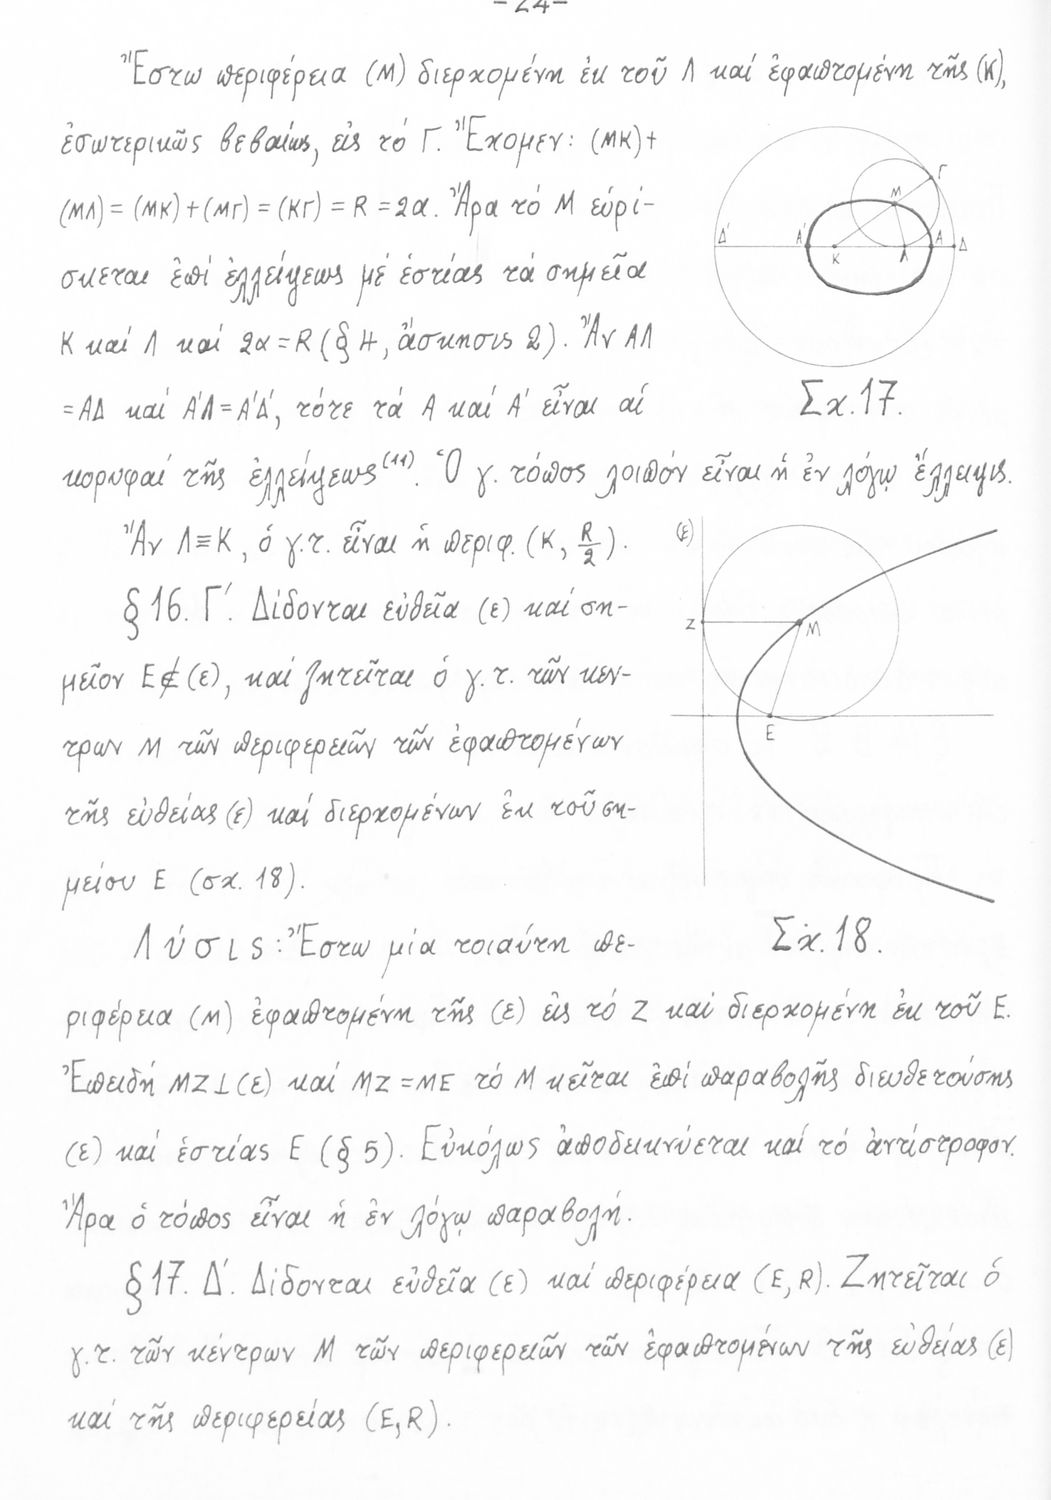 -24-
Ἔστω περιφέρεια (Μ) διερχομένη ἐκ τοῦ Λ καί ἐφαπτομένη τῆς (Κ),
ἐσωτερικῶς βεβαίως, εἰς τό Γ. Ἔχομεν: (ΜΚ)+
(ΜΛ) = (ΜΚ) + (ΜΓ) = (ΚΓ) = R = 2α. Ἄρα τό Μ εὑρί-
σκεται ἐπί ἐλλείψεως μέ ἑστίας τά σημεῖα
Κ καί Λ καί 2α = R (§ 4, ἄσκησις 2). Ἄν ΑΛ
= ΑΔ καί Α'Λ = Α'Δ', τότε τά Α καί Α' εἶναι αἱ
κορυφαί τῆς ἐλλείψεως(11). Ὁ γ. τόπος λοιπόν εἶναι ἡ ἐν λόγῳ ἔλλειψις.
Δ' Α' Κ Λ Α Δ Μ Γ
Σχ. 17.
Ἄν Λ≡Κ, ὁ γ.τ. εἶναι ἡ περιφ. (Κ, R/2).
§ 16. Γ'. Δίδονται εὐθεῖα (ε) καί ση-
μεῖον Ε∉(ε), καί ζητεῖται ὁ γ.τ. τῶν κέν-
τρων Μ τῶν περιφερειῶν τῶν ἐφαπτομένων
τῆς εὐθείας (ε) καί διερχομένων ἐκ τοῦ ση-
μείου Ε (σχ. 18).
(ε) Ζ Μ Ε
Σχ. 18.
Λύσις: Ἔστω μία τοιαύτη πε-
ριφέρεια (Μ) ἐφαπτομένη τῆς (ε) εἰς τό Ζ καί διερχομένη ἐκ τοῦ Ε.
Ἐπειδή ΜΖ⊥(ε) καί ΜΖ = ΜΕ τό Μ κεῖται ἐπί παραβολῆς διευθετούσης
(ε) καί ἑστίας Ε (§ 5). Εὐκόλως ἀποδεικνύεται καί τό ἀντίστροφον.
Ἄρα ὁ τόπος εἶναι ἡ ἐν λόγῳ παραβολή.
§ 17. Δ'. Δίδονται εὐθεῖα (ε) καί περιφέρεια (Ε, R). Ζητεῖται ὁ
γ.τ. τῶν κέντρων Μ τῶν περιφερειῶν τῶν ἐφαπτομένων τῆς εὐθείας (ε)
καί τῆς περιφερείας (Ε, R).